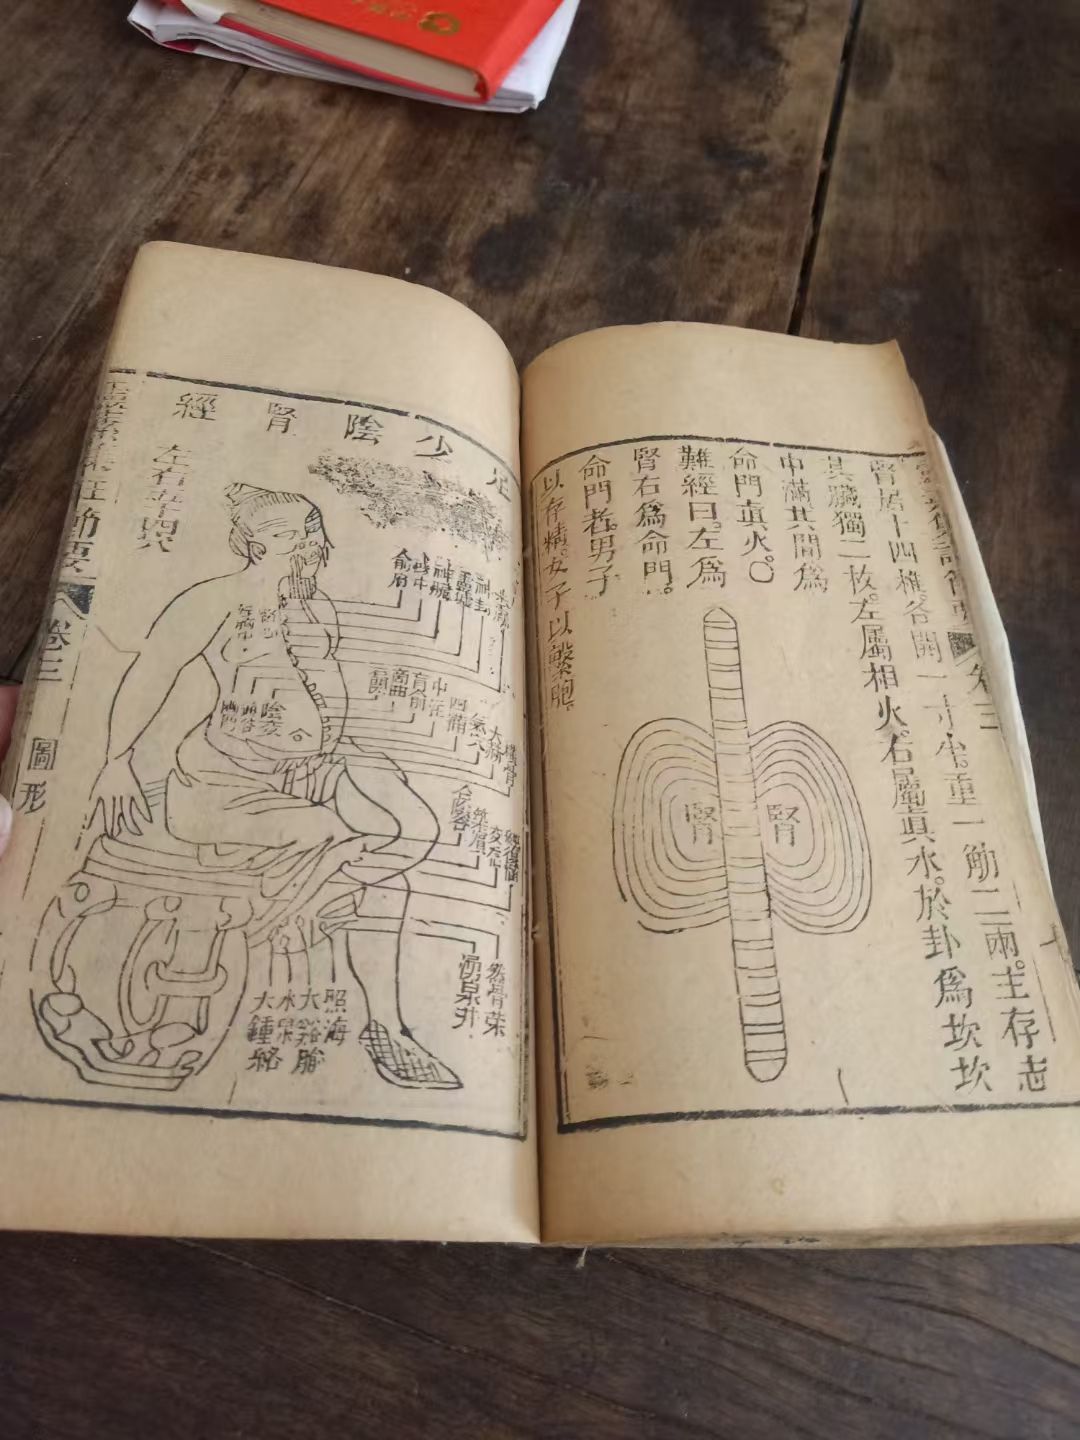 腎居十四椎各開一寸半重一觔二兩主存志
其臟獨二枚左屬相火右屬眞水於卦爲坎坎
中滿其間爲
命門眞火〇
難經曰左爲
腎右爲命門
命門者男子
以存精女子以繫胞
腎
腎
卷三
足少陰腎經
左右五十四穴
俞府
彧中
神藏
靈墟
神封
石關
商曲
肓俞
中注
四滿
氣穴
大赫
橫骨
陰谷
築賓
交信
復溜
然骨榮
湧泉井
照海
太谿腧
水泉
大鍾絡
卷三
圖形